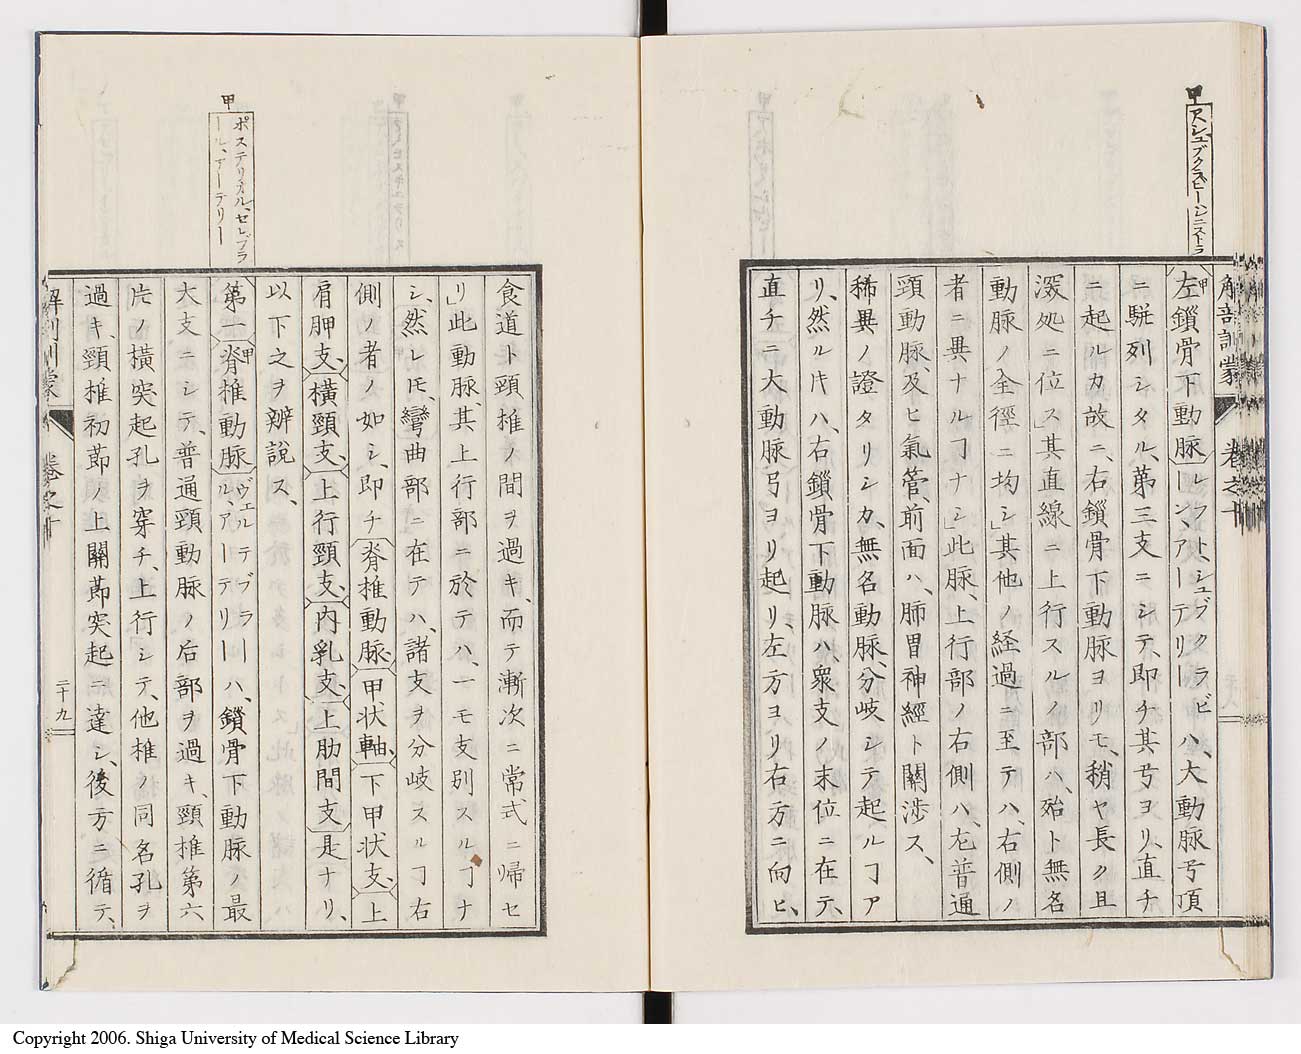 甲
解剖訓蒙 卷之十
左鎖骨下動脉ルラフト、シュブクラビーン、アーテリーハ、大動脉弓頂
ニ駢列シタル、第三支ニシテ、即チ其弓ヨリ、直チ
ニ起ルカ故ニ、右鎖骨下動脉ヨリモ、稍ヤ長ク且
深処ニ位ス」其直線ニ上行スルノ部ハ、殆ト無名
動脉ノ全徑ニ均シ」其他ノ経過ニ至テハ、右側ノ
者ニ異ナルヿナシ」此脉、上行部ノ右側ハ、左普通
頸動脉、及ヒ氣管、前面ハ、肺胃神經ト關渉ス、
稀異ノ證タリシカ、無名動脉、分岐シテ起ルヿア
リ、然ルキハ、右鎖骨下動脉ハ、衆支ノ末位ニ在テ、
直チニ大動脉弓ヨリ起リ、左方ヨリ右方ニ向ヒ、
食道ト頸椎ノ間ヲ過キ、而テ漸次ニ常式ニ帰セ
リ」此動脉、其上行部ニ於テハ、一モ支別スルヿナ
シ、然レ𪜈、彎曲部ニ在テハ、諸支ヲ分岐スルヿ右
側ノ者ノ如シ、即チ脊椎動脉、甲状軸、下甲状支、上
肩胛支、橫頸支、上行頸支、内乳支、上肋間支是ナリ、
以下之ヲ辨説ス、
甲
ポステリカル、セレブラ
ール、アーテリー
第一脊椎動脉ヴェルテブラールアーテリーハ、鎖骨下動脉ノ最
大支ニシテ、普通頸動脉ノ后部ヲ過キ、頸椎第六
片ノ橫突起孔ヲ穿チ、上行シテ、他椎ノ同名孔ヲ
過キ、頸椎初節ノ上關節突起ニ達シ、後方ニ循テ、
解剖訓蒙 卷之十 二十九
Copyright 2006. Shiga University of Medical Science Library